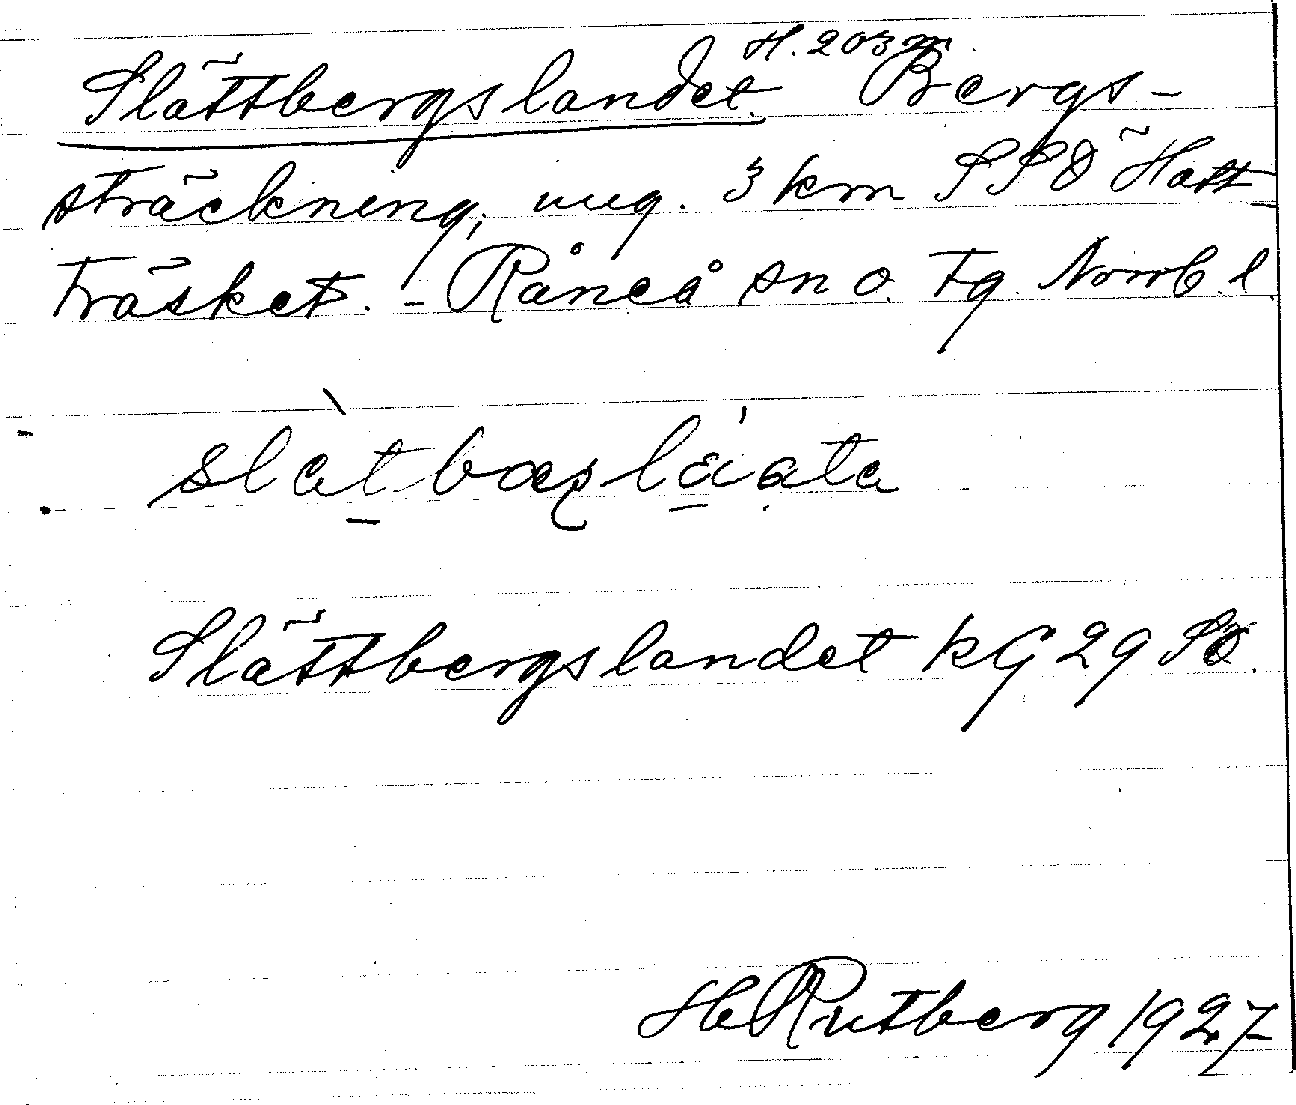 Slättbergslandet. H. 203 m. Bergs-
sträckning, ung. 3 km SSÖ Hatt-
träsket. - Råneå sn o. tg Norrb. l.
Slättbergslandet KG 29 SO.
H Rutberg 1927